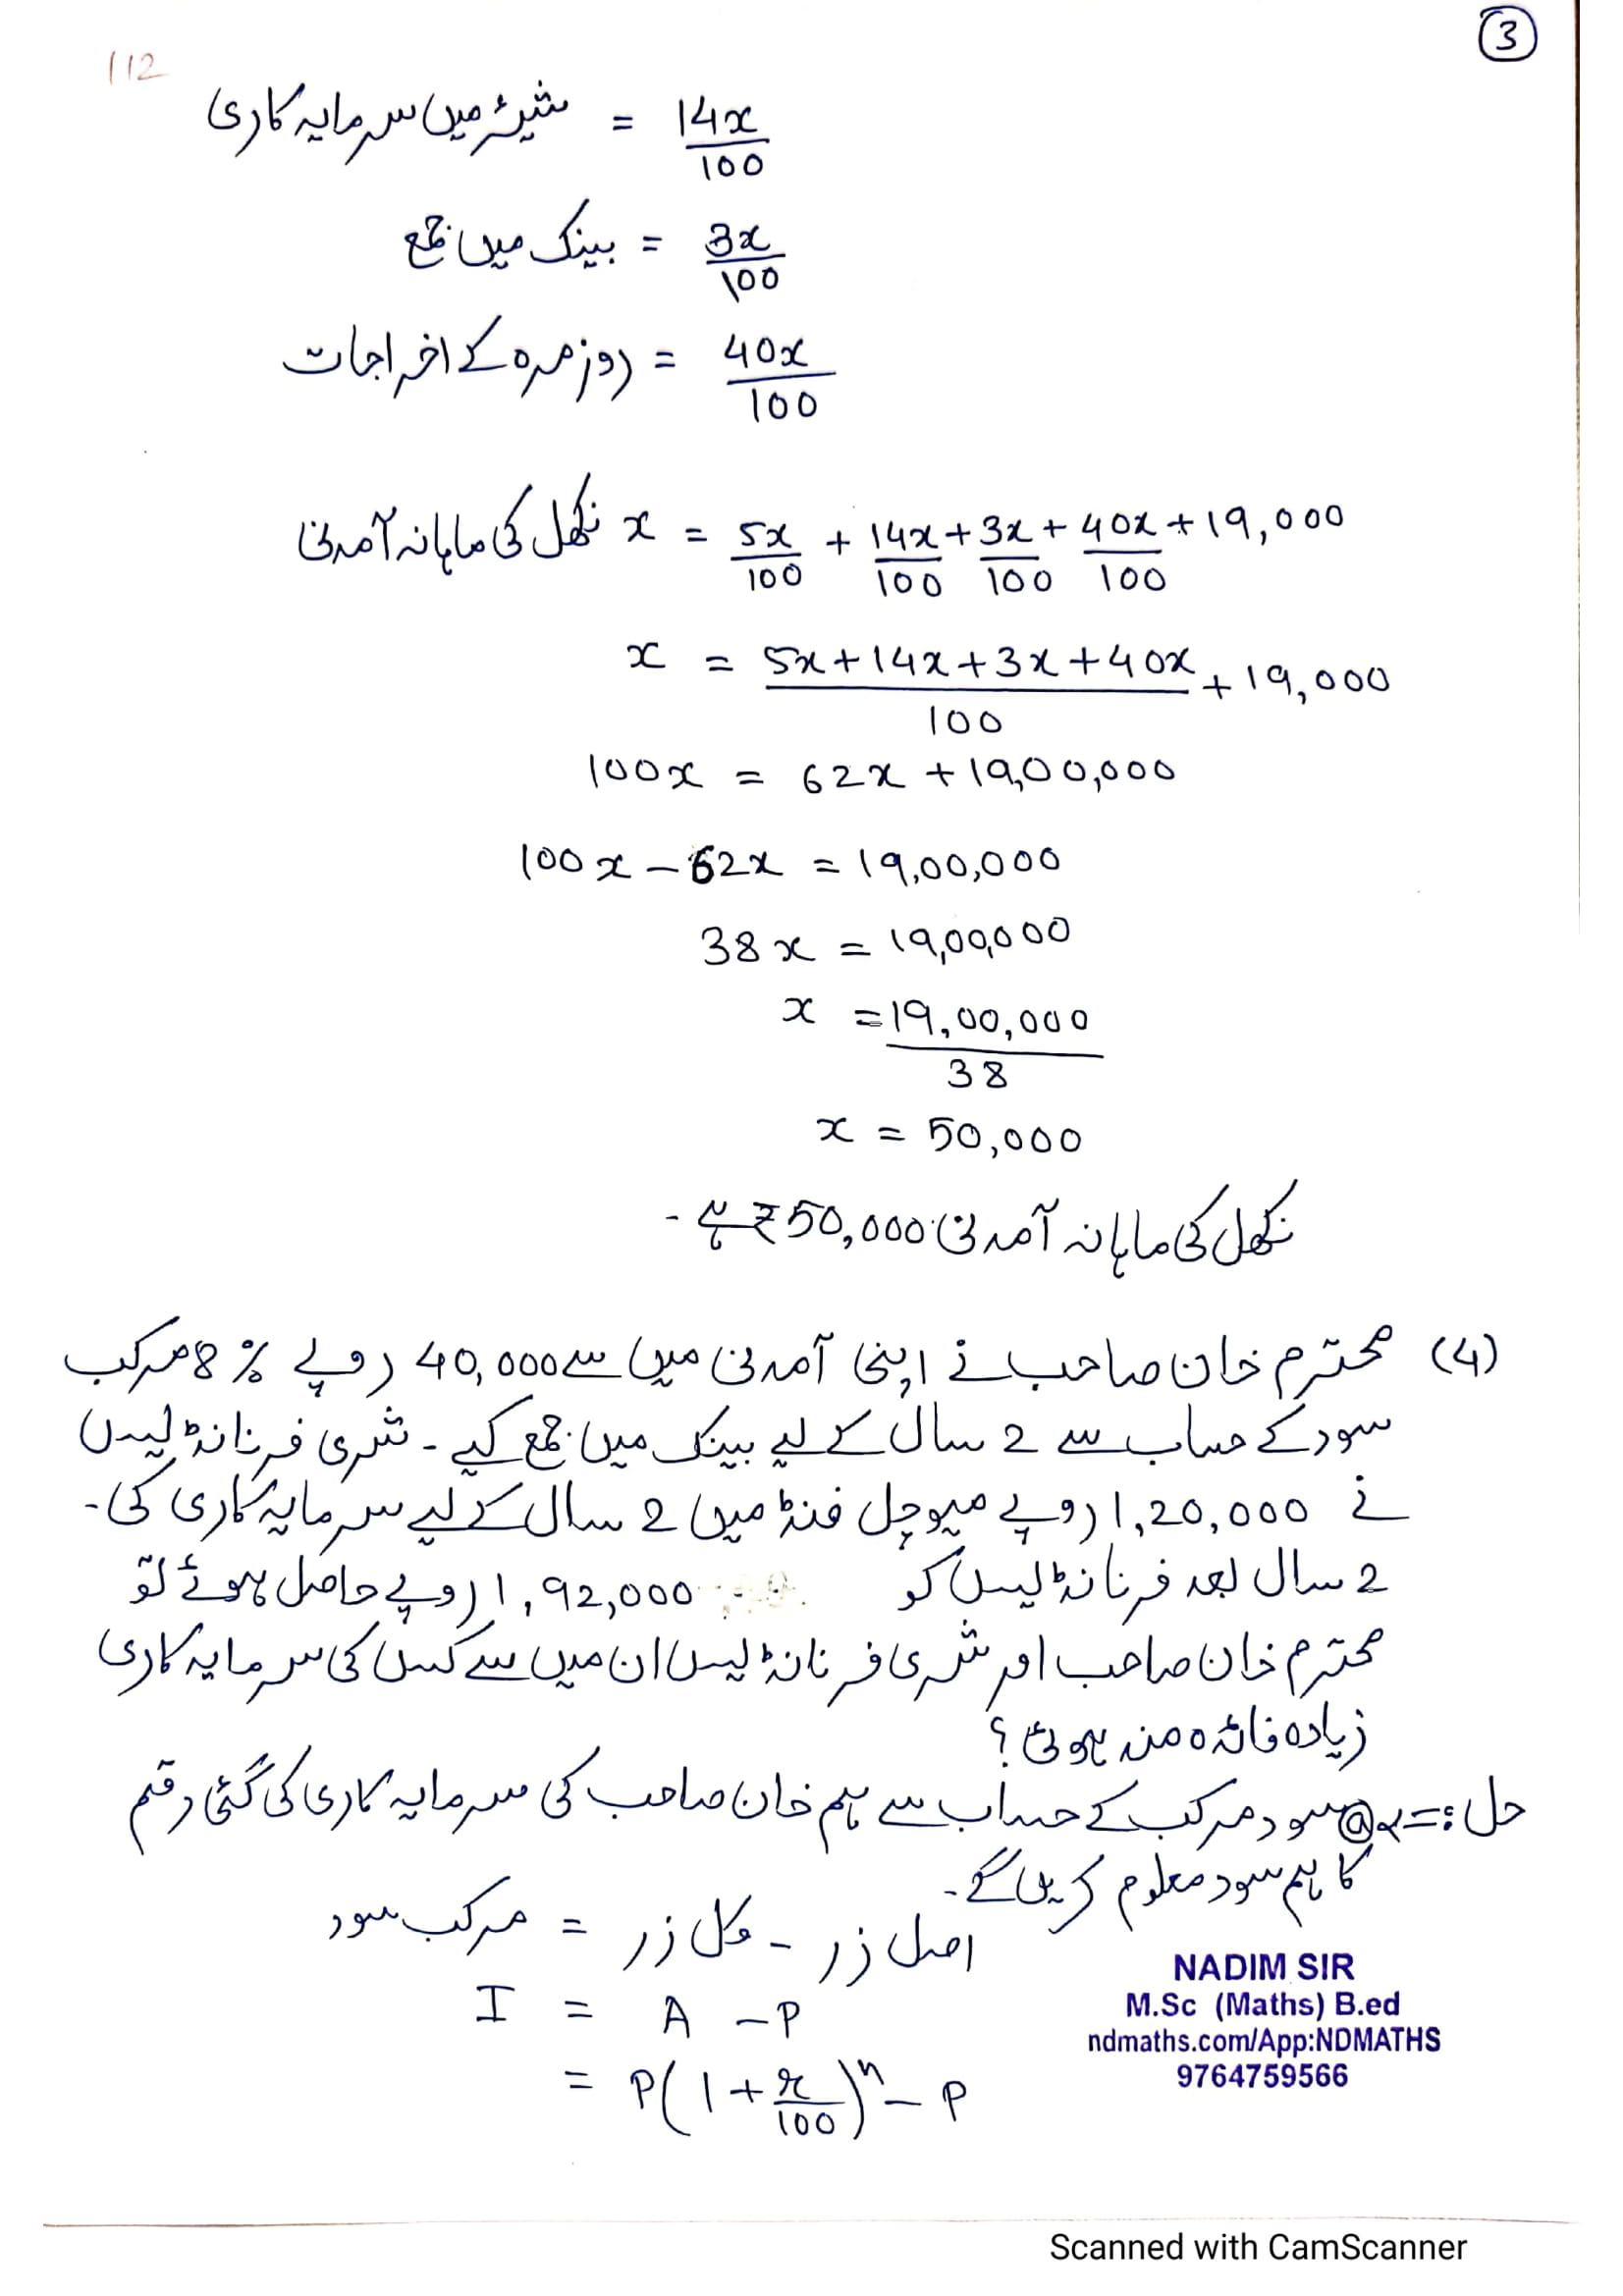 3
112
شیئر میں سرمایہ کاری = 14x/100
بینک میں جمع = 3x/100
روزمرہ کے اخراجات = 40x/100
نکھل کی ماہانہ آمدنی x = 5x/100 + 14x/100 + 3x/100 + 40x/100 + 19,000
x = (5x+14x+3x+40x)/100 + 19,000
100x = 62x + 19,00,000
100x – 62x = 19,00,000
38x = 19,00,000
x = 19,00,000/38
x = 50,000
نکھل کی ماہانہ آمدنی ₹50,000 ہے۔
(4) محترم خان صاحب نے اپنی آمدنی میں سے 40,000 روپے 8% مرکب
سود کے حساب سے 2 سال کے لیے بینک میں جمع کیے۔ شری فرنانڈلیس
نے 1,20,000 روپے میوچل فنڈ میں 2 سال کے لیے سرمایہ کاری کی۔
2 سال بعد فرنانڈلیس کو 1,92,000 روپے حاصل ہوئے تو
محترم خان صاحب اور شری فرنانڈلیس ان میں سے کس کی سرمایہ کاری
زیادہ فائدہ مند ہوئی؟
حل :- @ سود مرکب کے حساب سے ہم خان صاحب کی سرمایہ کاری کی گئی رقم
کا ہم سود معلوم کریں گے۔
مرکب سود = کل زر - اصل زر
I = A – P
= P(1 + r/100)ⁿ – P
NADIM SIR
M.Sc (Maths) B.ed
ndmaths.com/App:NDMATHS
9764759566
Scanned with CamScanner